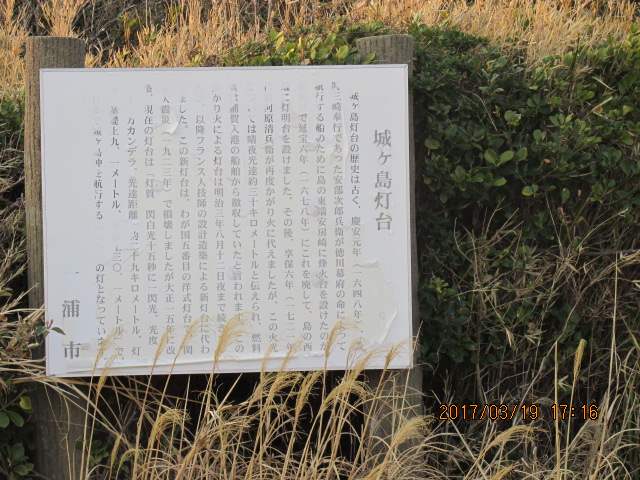 城ヶ島灯台
城ヶ島灯台の歴史は古く、慶安元年(一六四八年)
三崎奉行であった安部次郎兵衛が徳川幕府の命によって
航行する船のために島の東端安房崎に烽火台を設けたの
で延宝六年(一六七八年)にこれを廃して、島の西
に灯明台を設けました。その後、享保六年(一七二一年
河原清兵衛が再度かがり火に代えましたが、この火光
は晴夜光達約三十キロメートルと伝えられ、燃料
浦賀入港の船舶から徴収していたと言われます。この
かがり火による灯台は明治三年八月十二日夜まで続き
以降フランス人技師の設計造築による新灯台に代わ
ました。この新灯台は、わが国五番目の洋式灯台で、関
大震災(一九二三年)で損壊しましたが大正一五年に改
現在の灯台は「灯質 閃白光十五秒に一閃光、光度
万カンデラ、光達距離 約二十九キロメートル、灯
基礎上九、一メートル、 三〇、一メートル」で、
城ヶ島沖を航行する の灯となっています
浦市
2017/03/19 17:16